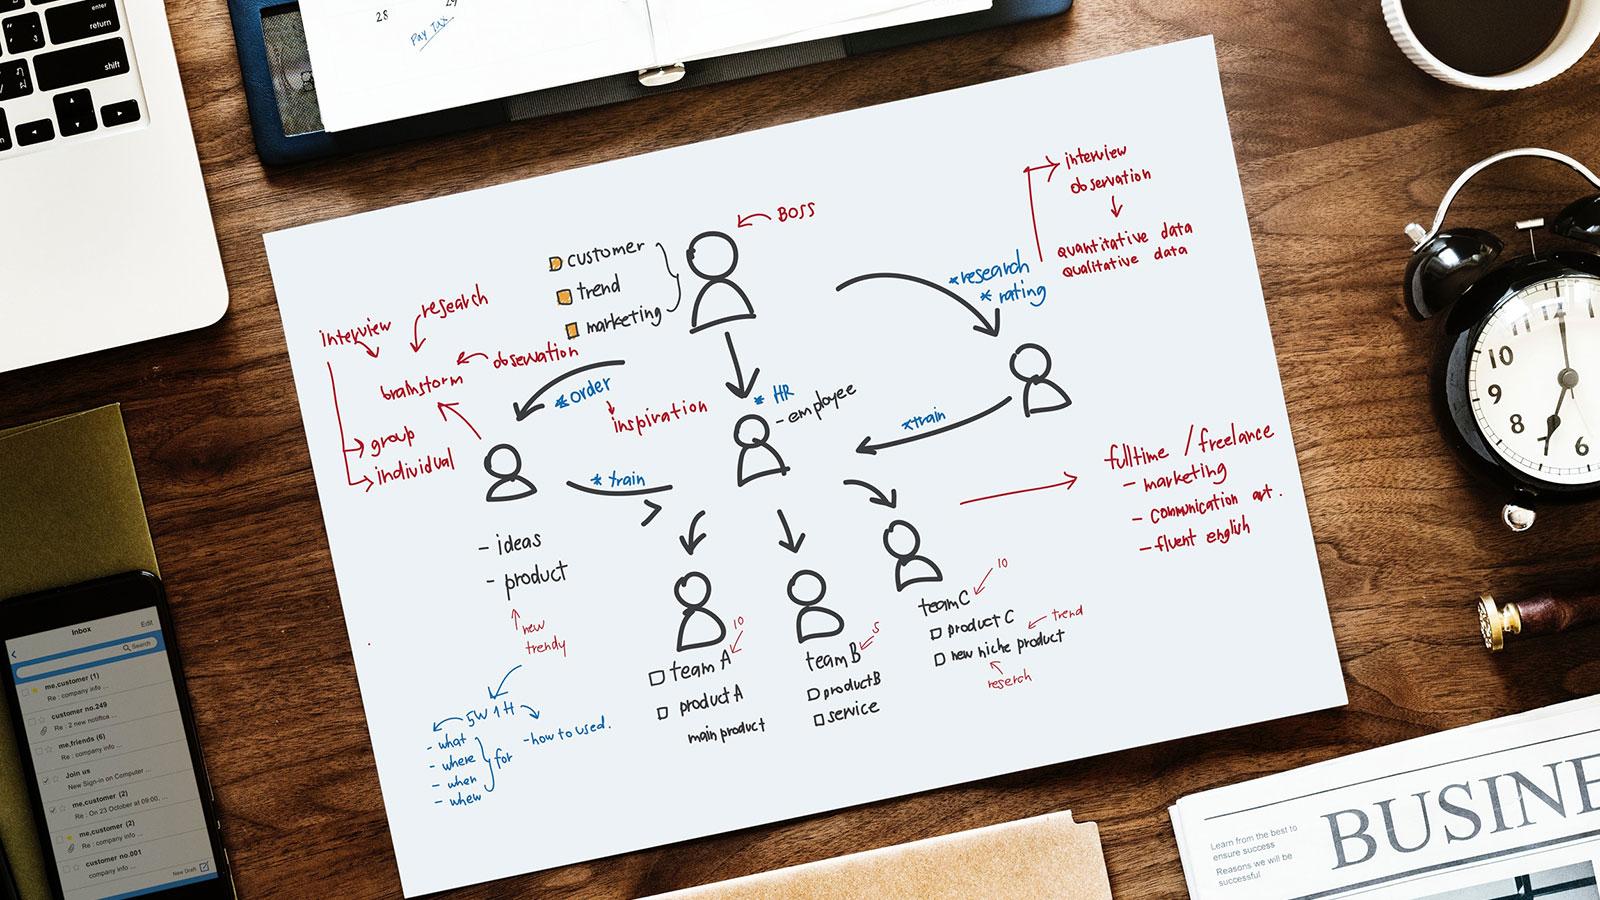 enter
return
shift
28
29
Pay Tax
BOSS
customer
trend
marketing
interview
observation
quantitative data
qualitative data
*research
* rating
interview
research
observation
brainstorm
group
individual
*order
inspiration
* HR
- employee
*train
* train
- ideas
- product
new
trendy
5W 1H
- what
- where
- when
- whew
for
- how to used.
10
team A
product A
main product
5
team B
product B
service
10
team C
product C
new niche product
trend
reserch
fulltime / freelance
- marketing
- communication art.
- fluent english
11
12
10
9
8
7
6
Inbox
Edit
Search
me,customer (1)
Re : company info ...
customer no.249
Re : 2 new notifica ...
me,friends (6)
Re : company info ...
Join us
New Sign-in on Computer ...
me,customer (2)
Re : On 23 October at 09:00, ...
me,customer (2)
Re : company info ...
customer no.001
company info ...
New Draft
Learn from the best to
ensure success
Reasons we will be
successful
BUSINE